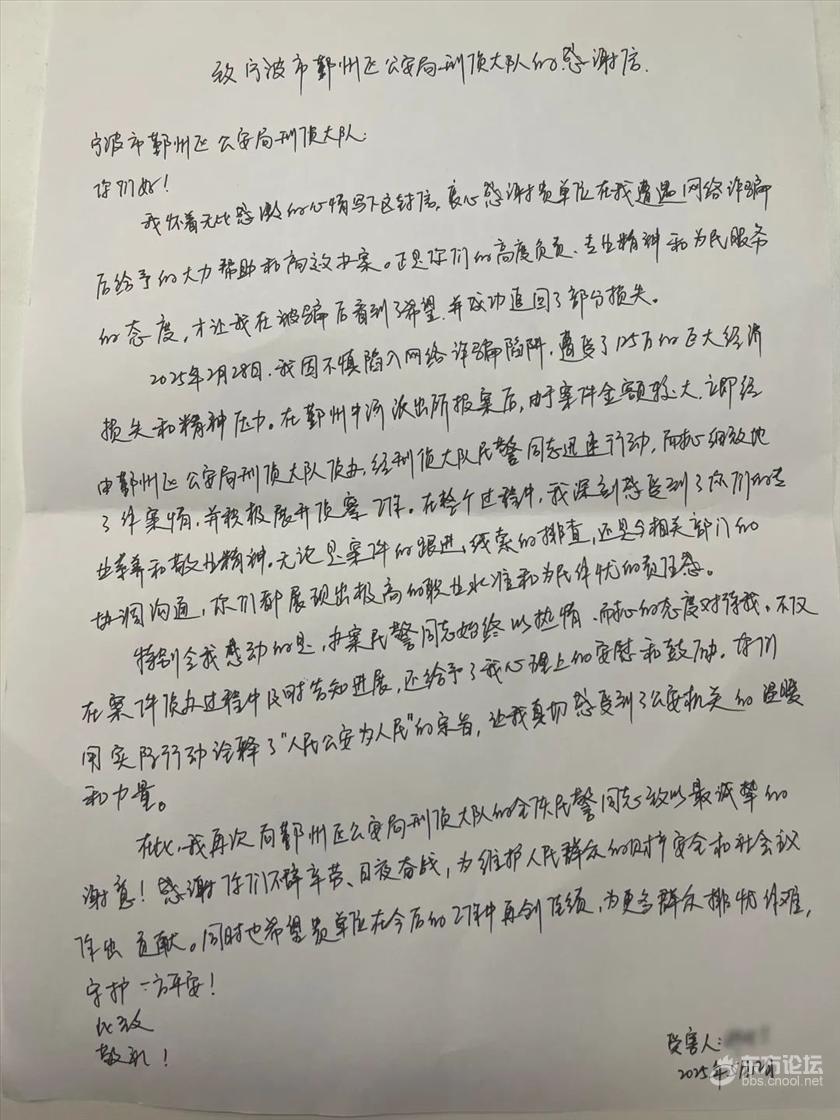 致宁波市鄞州区公安局刑侦大队的感谢信.
宁波市鄞州区公安局刑侦大队:
你们好!
我怀着无比感激的心情写下这封信,衷心感谢贵单位在我遭遇网络诈骗
后给予的大力帮助和高效办案。正是你们的高度负责、专业精神和为民服务
的态度,才让我在被骗后看到了希望,并成功追回了部分损失。
2025年2月28日,我因不慎陷入网络诈骗陷阱,遭受了125万的巨大经济
损失和精神压力。在鄞州中河派出所报案后,由于案件金额较大,立即经
由鄞州区公安局刑侦大队侦办,经刑侦大队民警同志迅速行动,耐心细致地
了解案情,并积极展开侦察工作。在整个过程中,我深刻感受到了你们的专
业素养和敬业精神。无论是案件的跟进,线索的排查,还是与相关部门的
协调沟通,你们都展现出极高的职业水准和为民作忧的责任感。
特别令我感动的是,办案民警同志始终以热情、耐心的态度对待我。不仅
在案件侦办过程中及时告知进展,还给予了我心理上的安慰和鼓励。你们
用实际行动诠释了“人民公安为人民”的宗旨,让我真切感受到了公安机关的温暖
和力量。
在此,我再次向鄞州区公安局刑侦大队的全体民警同志致以最诚挚的
谢意!感谢你们不辞辛劳、日夜奋战,为维护人民群众的财产安全和社会
作出贡献。同时也希望贵单位在今后的工作中再创佳绩,为更多群众排忧解难,
守护一方平安!
此致
敬礼!
受害人:
2025年
东方论坛
bbs.cnool.net